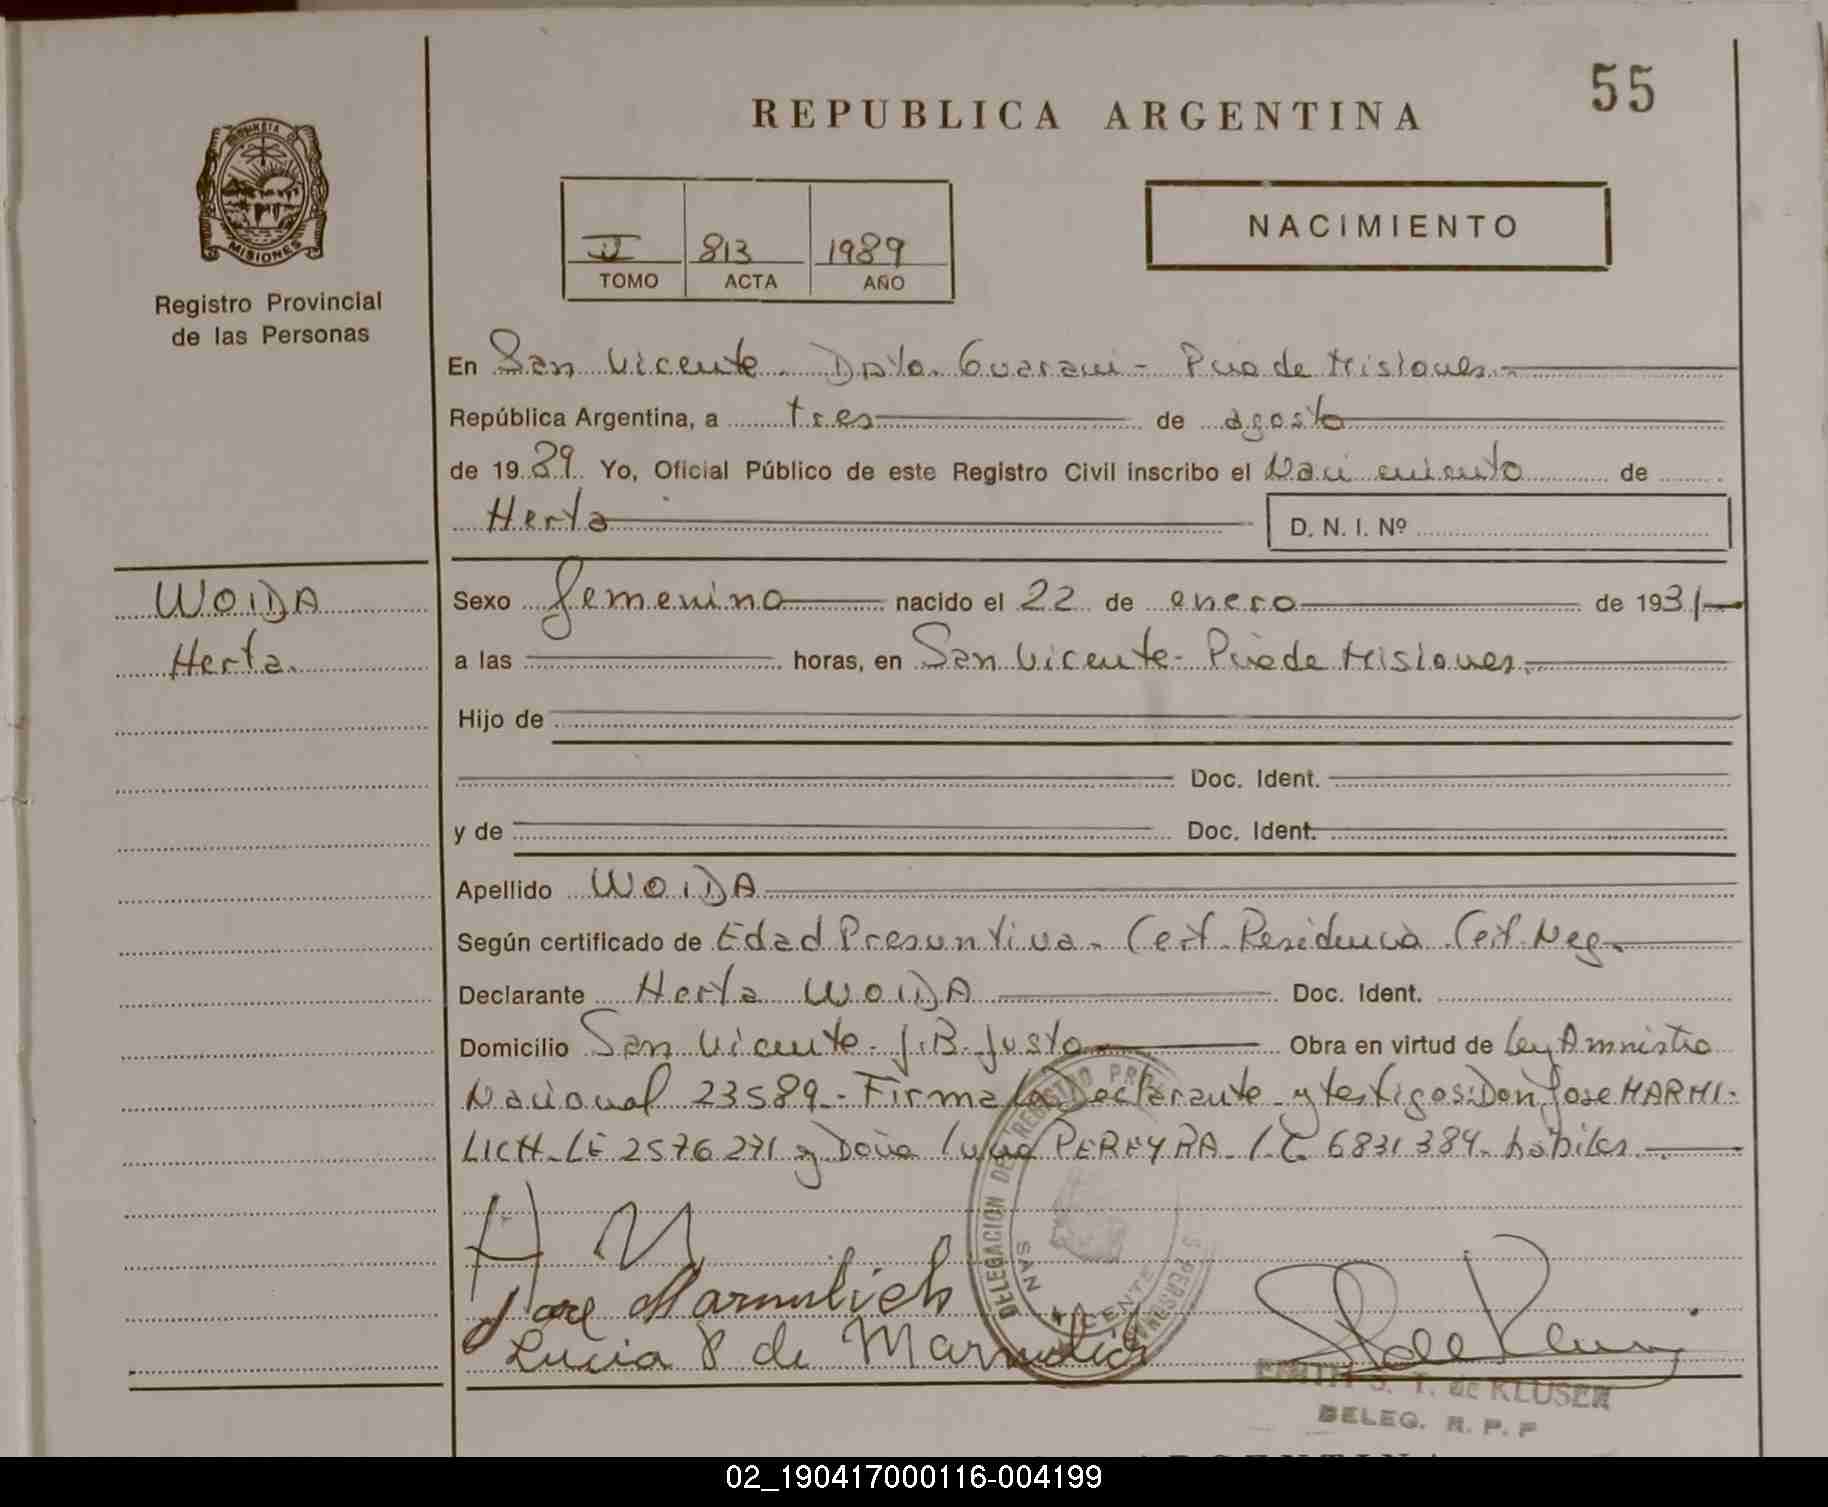 55
REPUBLICA ARGENTINA
PROVINCIA DE
MISIONES
Registro Provincial
de las Personas
II 813 1989
TOMO ACTA AÑO
NACIMIENTO
En San Vicente Dpto. Guarani - Pcia de Misiones.-
República Argentina, a tres de agosto
de 1989 Yo, Oficial Público de este Registro Civil inscribo el Nacimiento de
Herta D. N. I. Nº
WOIDA
Herta.
Sexo femenino nacido el 22 de enero de 1931-
a las horas, en San Vicente - Pcia de Misiones.
Hijo de
Doc. Ident.
y de Doc. Ident.
Apellido WOIDA
Según certificado de Edad Presuntiva - Cert. Residencia Cert. Neg.
Declarante Herta WOIDA Doc. Ident.
Domicilio San Vicente - J.B. Justo Obra en virtud de Ley Amnistia
Nacional 23589.- Firma la Declarante y testigos: Don Jose MARMI-
LICH - LE 2576271 y Doña Lucia PEREYRA - L.C. 6831384. habiles.
H W
Jose Marmilich
Lucia P de Marmilich
DELEGACION DEL REGISTRO PROV. DE LAS PERSONAS
SAN VICENTE
S. T. de KLUSEN
DELEG. R. P. P
ARGENTINA
02_190417000116-004199